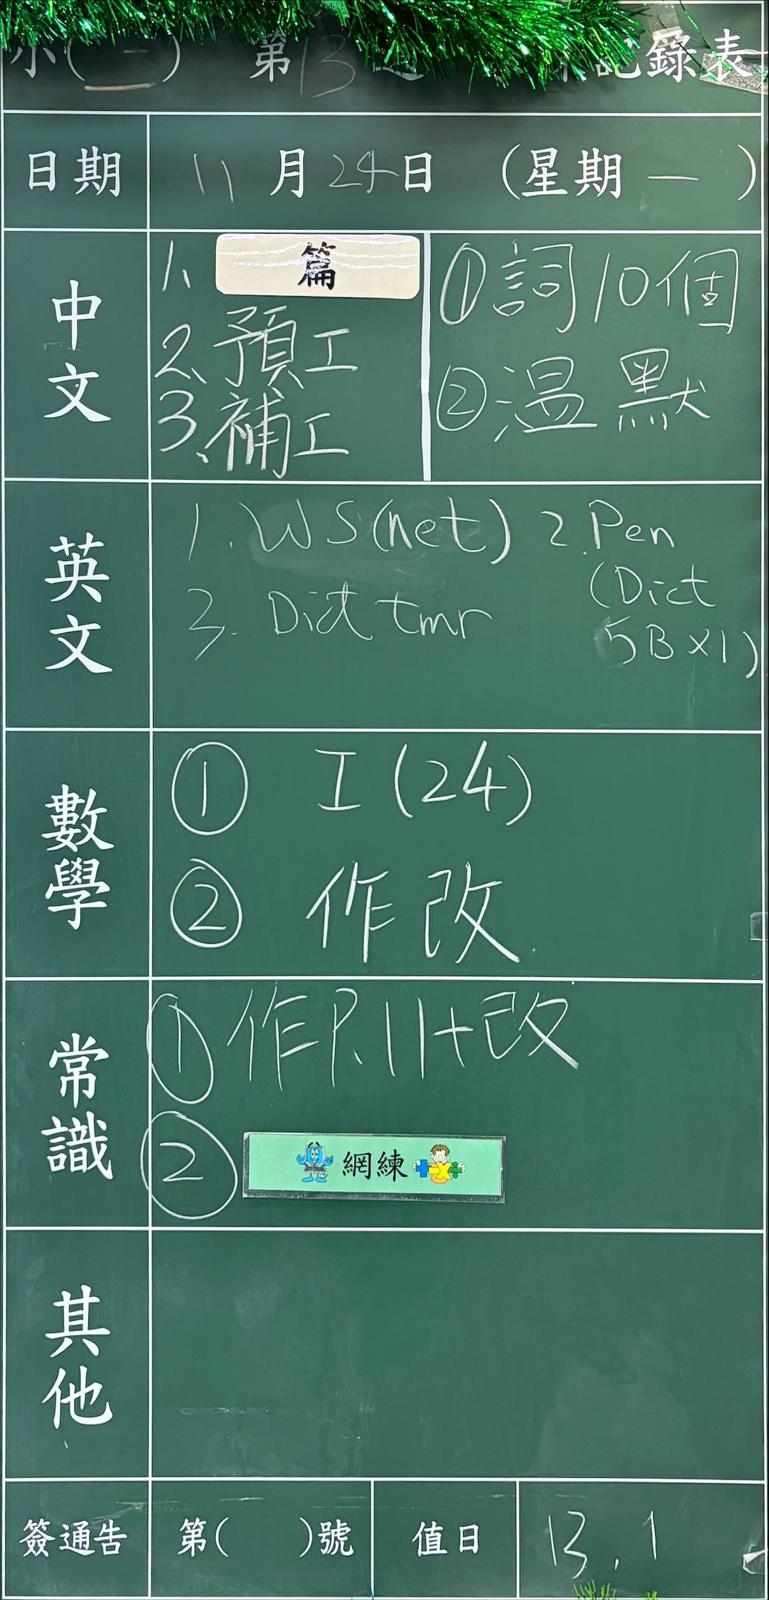 小(二) 第13 記錄表
日期 11月24日 (星期一)
中文
1. 篇
2. 預工
3. 補工
①詞10個
②溫默
英文
1. WS(net) 2. Pen
(Dict
5B×1)
3. Dict tmr
數學
① 工(24)
② 作改
常識
①作P.11+改
② 網練
其他
簽通告 第( )號 值日 13.1